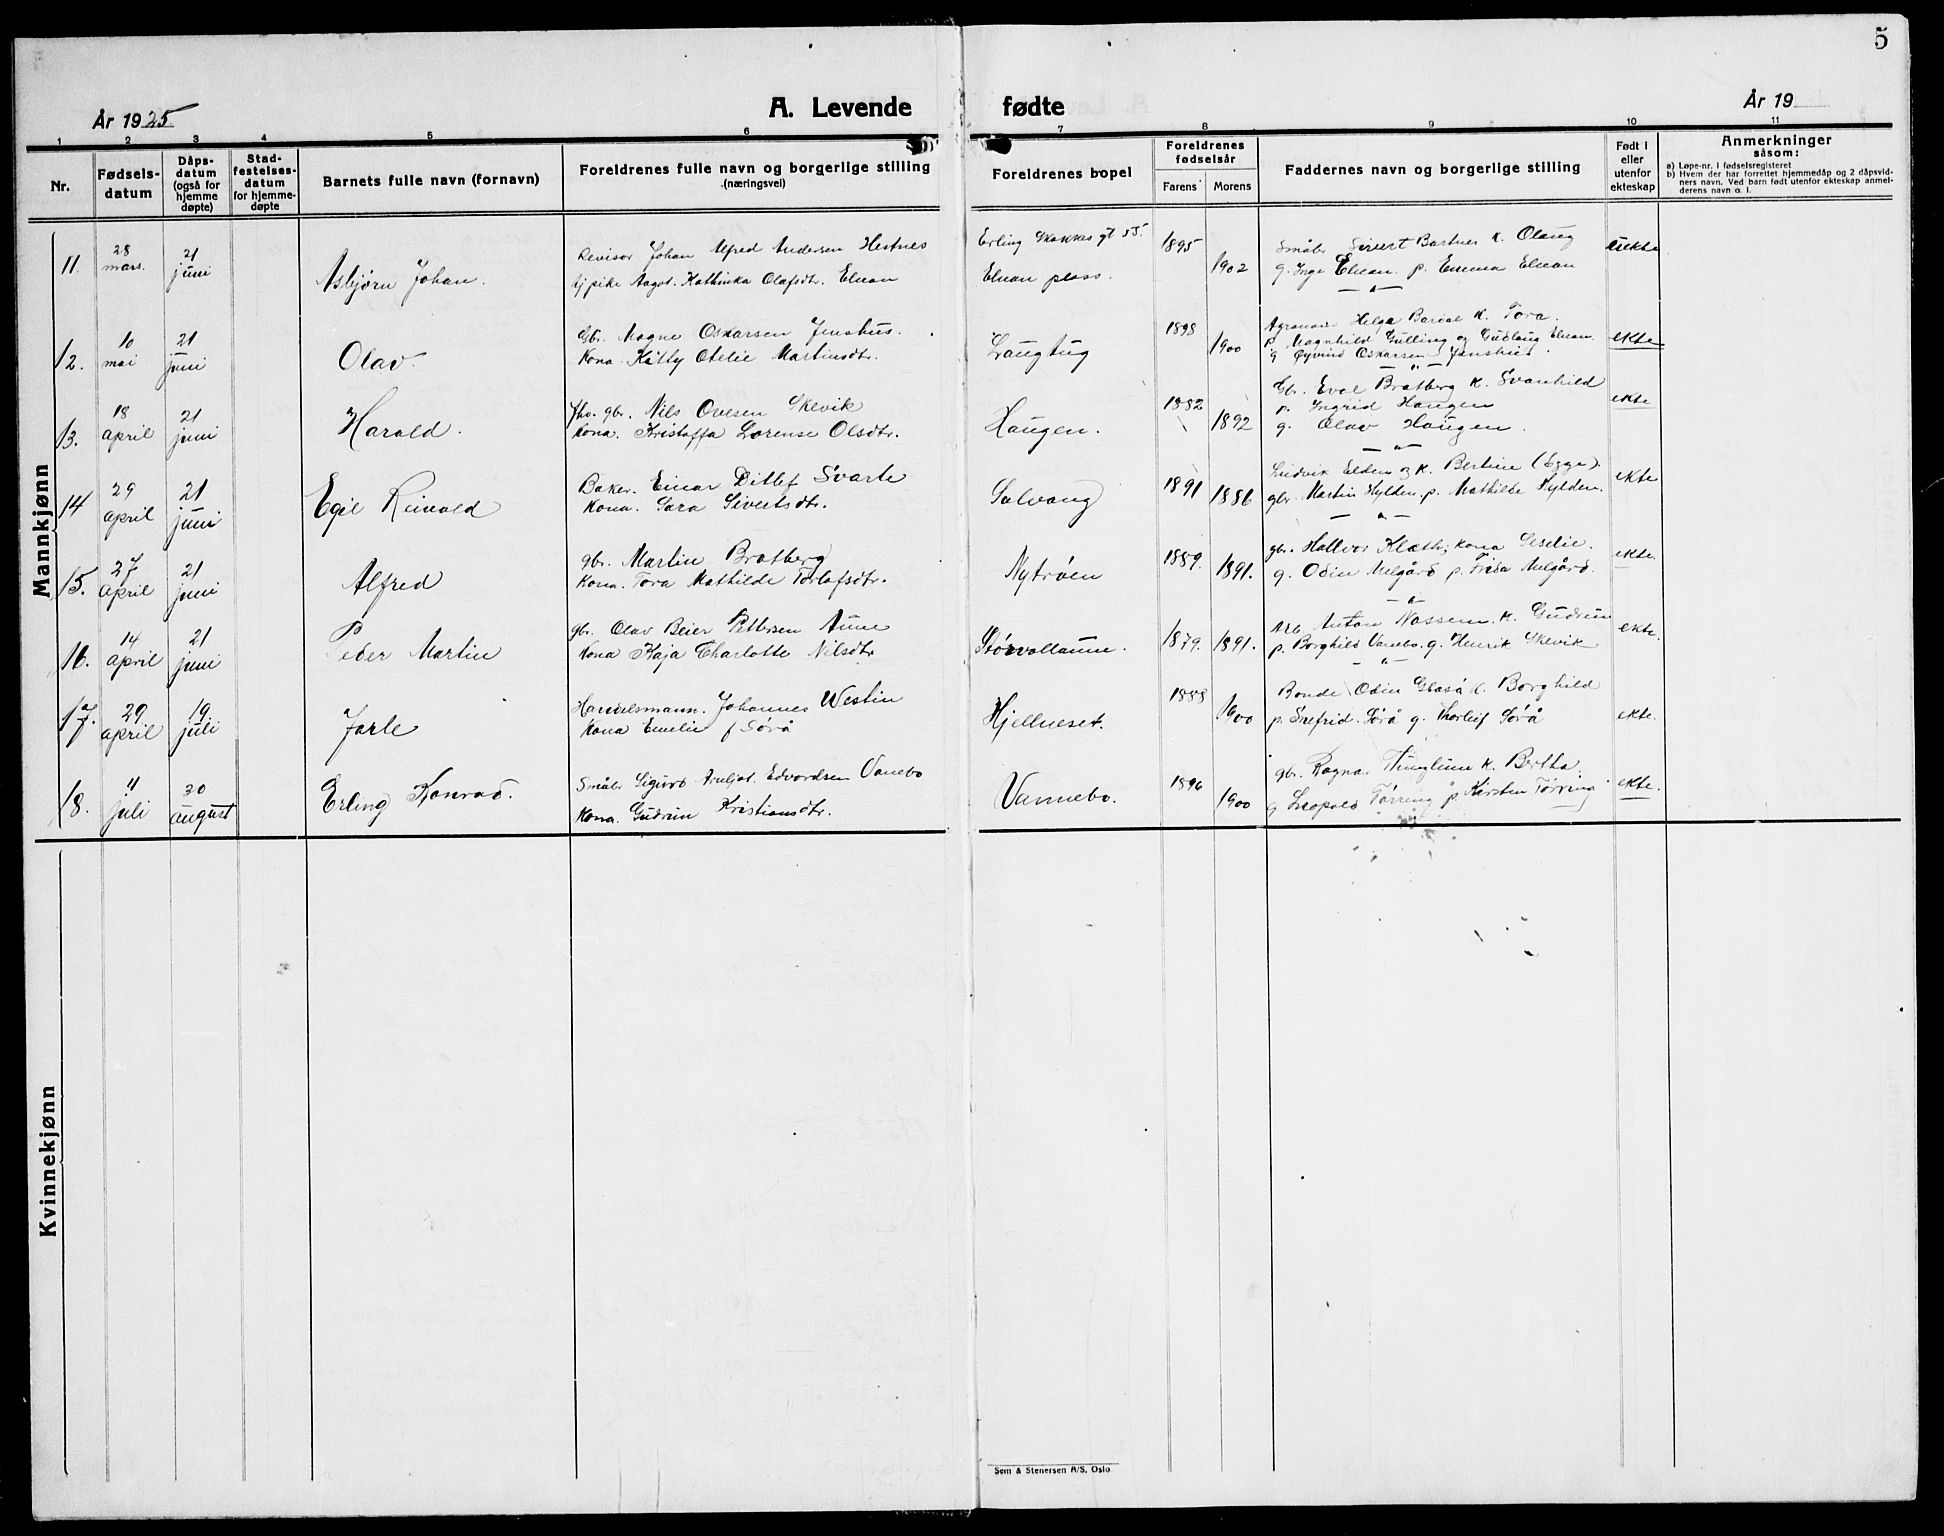 5
År 1925
A. Levende
fødte
År 19
1 2 3 4 5 6 7 8 9 10 11
Nr.
Fødsels-
datum
Dåps-
datum
(også for
hjemme
døpte)
Stad-
festelses-
datum
for hjemme-
døpte
Barnets fulle navn (fornavn)
Foreldrenes fulle navn og borgerlige stilling
(næringsvei)
Foreldrenes bopel
Foreldrenes
fødselsår
Farens
Morens
Faddernes navn og borgerlige stilling
Født i
eller
utenfor
ekteskap
Anmerkninger
såsom:
a) Løpe-nr. i fødselsregisteret
b) Hvem der har forrettet hjemmedåp og 2 dåpsvid-
ners navn. Ved barn født utenfor ekteskap anmel-
derens navn o. l.
Mannkjønn
11.
28
mars.
21
juni
Asbjørn Johan.
Revisor Johan Alfred Andersen Hestnes
tj pike Aagot Kathinka Olafsdtr. Elnan
Erling Skakkes gt 55.
Elnan plass.
1895
1902
Småbr Sivert Bartnes k. Olaug
g. Inge Elnan. p. Emma Elnan
uekte
12.
10
mai
21
juni
Olav.
Gbr. Magne Oskarsen Jenshus.
Kona Kitty Otelie Martinsdtr.
Langtug
1898
1900
Helge k. Tora.
p. Magnhild Gulling og Gudlaug Elnan
g Øyvind Oskarsen Jenshus.
ekte
13.
18
april
21
juni
Harald.
gbr. Nils Ovesen Skevik
Kona. Kristoffa Lorense Olsdtr.
Haugen.
1882
1892
Gb. Eval Bratberg k. Svanhild
p. Ingrid Haugen
g. Olav Haugen.
ekte
14
29
april
21
juni
Egil Reivald
Baker. Einar Ditlef Svarte
Kona. Sara Sivertsdtr.
Solvang
1891
1886
Ludvik Elden og k. Bertine (Egge).
gbr. Martin Hylden. p. Mathilde Hylden.
ekte
15.
27
april
21
juni
Alfred
gbr. Martin Bratberg
Kona. Tora Mathilde Torlafsdtr.
Nytrøen
1889.
1891.
gbr. Hallvor Klæth, kona Geselie.
g. Odin Melgård p. Frida Melgård.
ekte.
16.
14
april
21
juni
Peder Martin
gb. Olav Beier Pettersen Aune
Kona Kaja Charlotte Nilsdtr
Storvollaune.
1879.
1891.
Arb. Anton Nossem. k. Gudrun
p. Borghild Vanebo. g. Henrik Skevik
ekte.
17.
29
april
19
juli
Jarle
Handelsmann. Johannes Westin
Kona Emelie f Sørå
Hjellneset.
1888
1900
Bonde Odin Gløså k. Borghild
p. Snefrid. Sørå g. Thorleif Sørå
ekte.
18.
4
juli
30
august
Erling Konrad.
Småbr Sigurd Arnljot Edvardsen Vanebo
Kona. Gudrun Kristiansdtr.
Vannebo.
1896
1900
gbr. Ragnar Tinglum k. Bertha
g Leopold Tørring p. Kirsten Tørring
ekte.
Kvinnekjønn
Sem & Stenersen A/S, Oslo